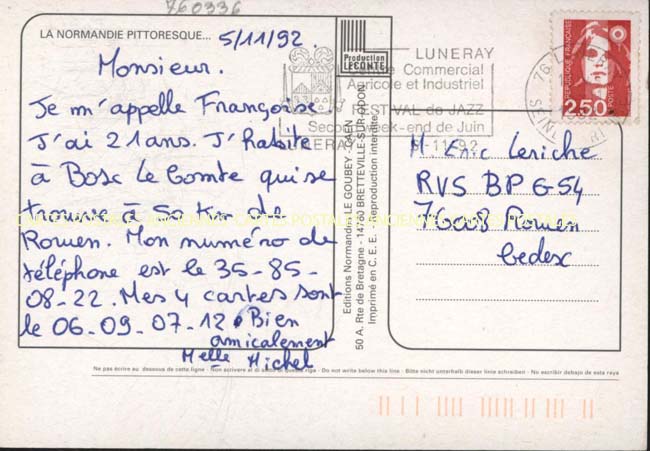 760336
LA NORMANDIE PITTORESQUE... 5/11/92.
Monsieur.
Je m'appelle Françoise
J'ai 21 ans. J'habite
à Bosc Le Comte qui se
trouve à 50 km de
Rouen. Mon numéro de
téléphone est le 35-85-
08-22. Mes 4 cartes sont
le 06-09-07-12. Bien
amicalement
Melle Michel
Production
LECONTE
LUNERAY
Centre Commercial
Agricole et Industriel
FESTIVAL de JAZZ
Second week-end de Juin
76 L
SEINE
REPUBLIQUE FRANÇAISE
2,50
POSTE
Editions Normandes LE GOUBEY - CAEN
50 A. Rte de Bretagne - 14760 BRETTEVILLE-SUR-ODON
Imprimé en C.E.E. - Reproduction interdite
M. Eric Leriche
RVS BP 654
76008 Rouen
Cedex
CARTES POSTALES ANCIENNES
Ne pas écrire au dessous de cette ligne - Non scrivere al di sotto di questa riga - Do not write below this line - Bitte nicht unterhalb dieser linie schreiben - No escribir debajo de esta raya